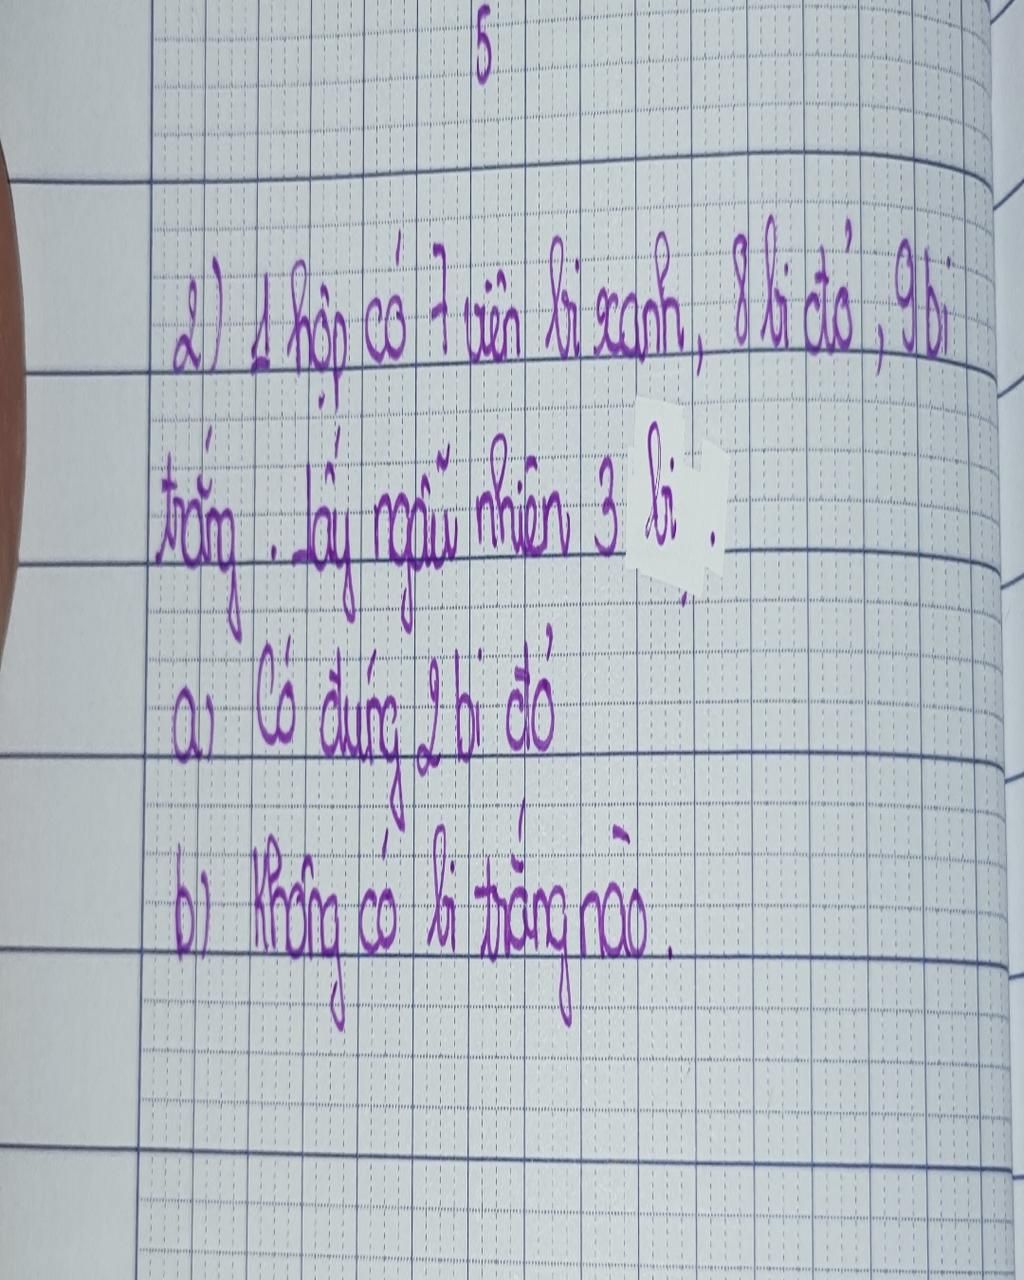 5
2) 1 hộp có 7 viên bi xanh, 8 bi đỏ, 9 bi
trắng. Lấy ngẫu nhiên 3 bi.
a) Có đúng 2 bi đỏ
b) Không có bi trắng nào.